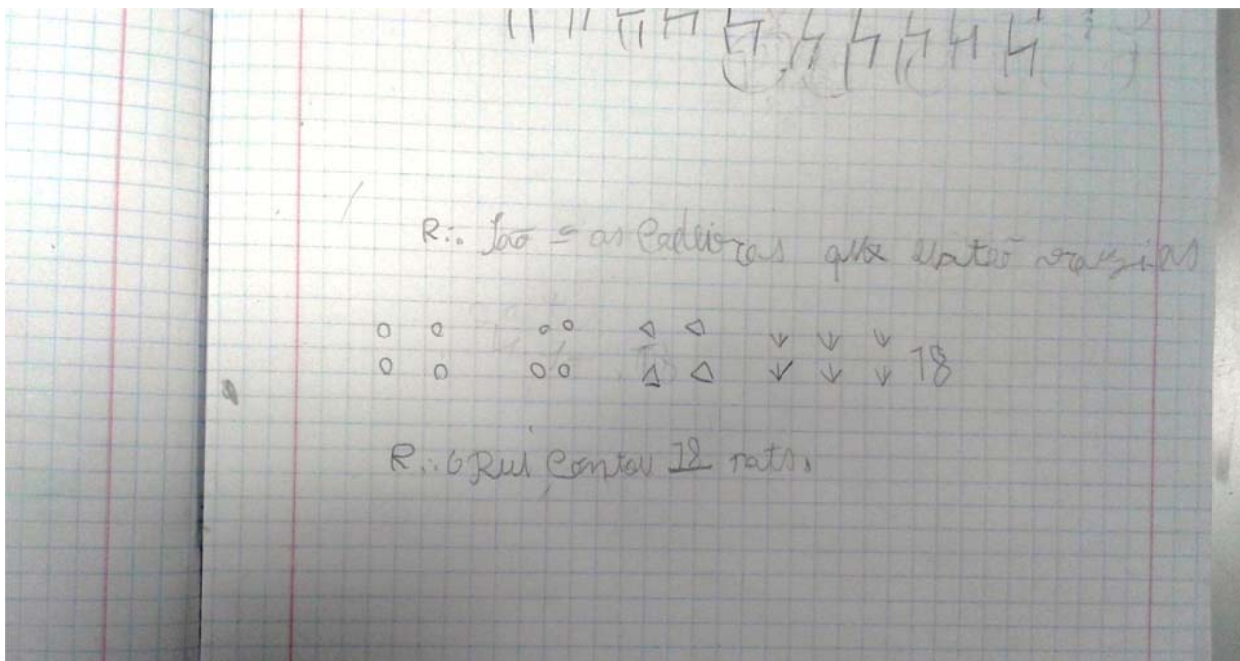 R.: São = as Cadeiras que estão vazias
18
R.: O Rui Contou 18